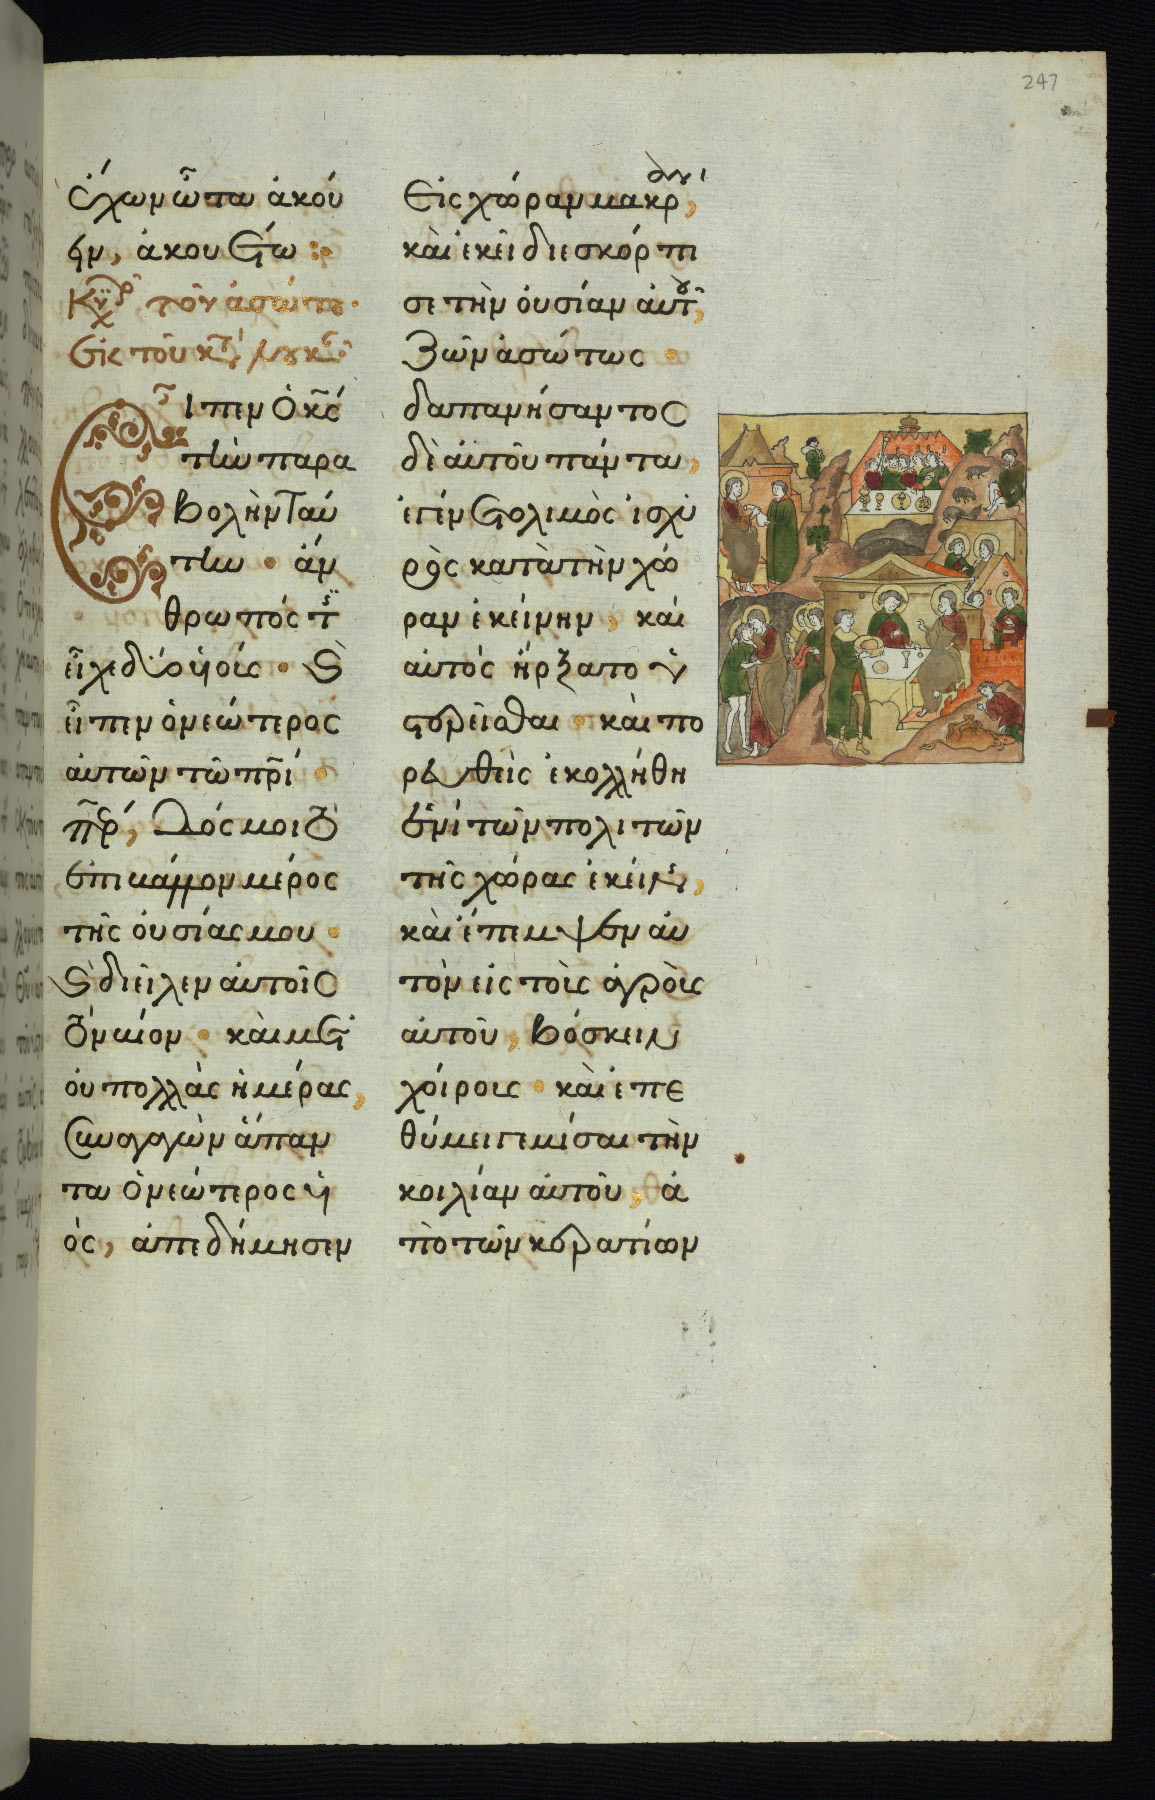 247
ἔχων ὦτα ἀκού
ειν, ἀκουέτω :
Κυρ τοῦ ἀσώτου·
ἐκ τοῦ κτ λουκ
Εἶπεν ὁ κς
τὴν παρα
βολὴν ταύ
την · ἄν
θρωπός τις
εἶχε δύο υἱούς · καὶ
εἶπεν ὁ νεώτερος
αὐτῶν τῶ πρί ·
περ, Δός μοι τὸ
ἐπιβάλλον μέρος
τῆς οὐσίας μου ·
καὶ διεῖλεν αὐτοῖς
τὸν βίον · καὶ μετ
οὐ πολλὰς ἡμέρας,
συναγαγὼν ἅπαν
τα ὁ νεώτερος υἱ
ός, ἀπεδήμησεν
Εἰς χώραν μακράν,
καὶ ἐκεῖ διεσκόρπι
σε τὴν οὐσίαν αὐτοῦ,
Ζῶν ἀσώτως ·
δαπανήσαντος
δὲ αὐτοῦ πάντα,
ἐγένετο λιμὸς ἰσχυ
ρὸς κατὰ τὴν χώ
ραν ἐκείνην, καὶ
αὐτὸς ἤρξατο ὑ
στερεῖσθαι · καὶ πο
ρευθεὶς ἐκολλήθη
ἑνὶ τῶν πολιτῶν
τῆς χώρας ἐκείνης,
καὶ ἔπεμψεν αὐ
τὸν εἰς τοὺς ἀγροὺς
αὐτοῦ, βόσκειν
χοίρους · καὶ ἐπε
θύμει γεμίσαι τὴν
κοιλίαν αὐτοῦ, ἀ
πὸ τῶν κερατίων